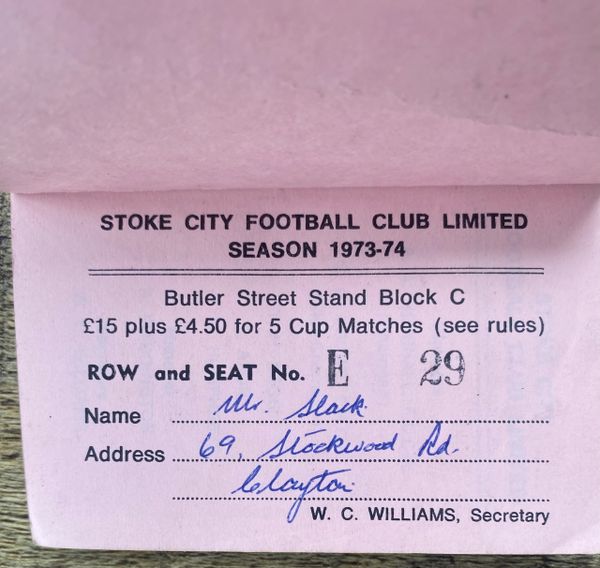 STOKE CITY FOOTBALL CLUB LIMITED
SEASON 1973-74
Butler Street Stand Block C
£15 plus £4.50 for 5 Cup Matches (see rules)
ROW and SEAT No. E 29
Name Mr. Slack.
Address 69, Stockwood Rd.
Clayton.
W. C. WILLIAMS, Secretary